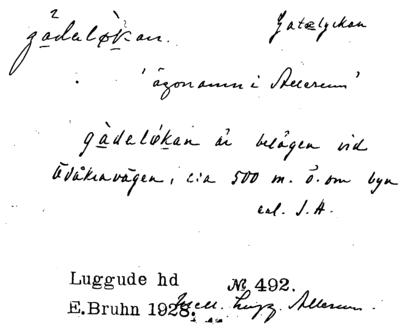 gådaløkan. Gatelyckan
'ägonamn i Allerum'
gàdaløkan är belägen vid
Ödåkravägen, c:a 500 m. ö. om byn
enl. J.H.
Luggude hd № 492.
E.Bruhn 1928. Allerum.